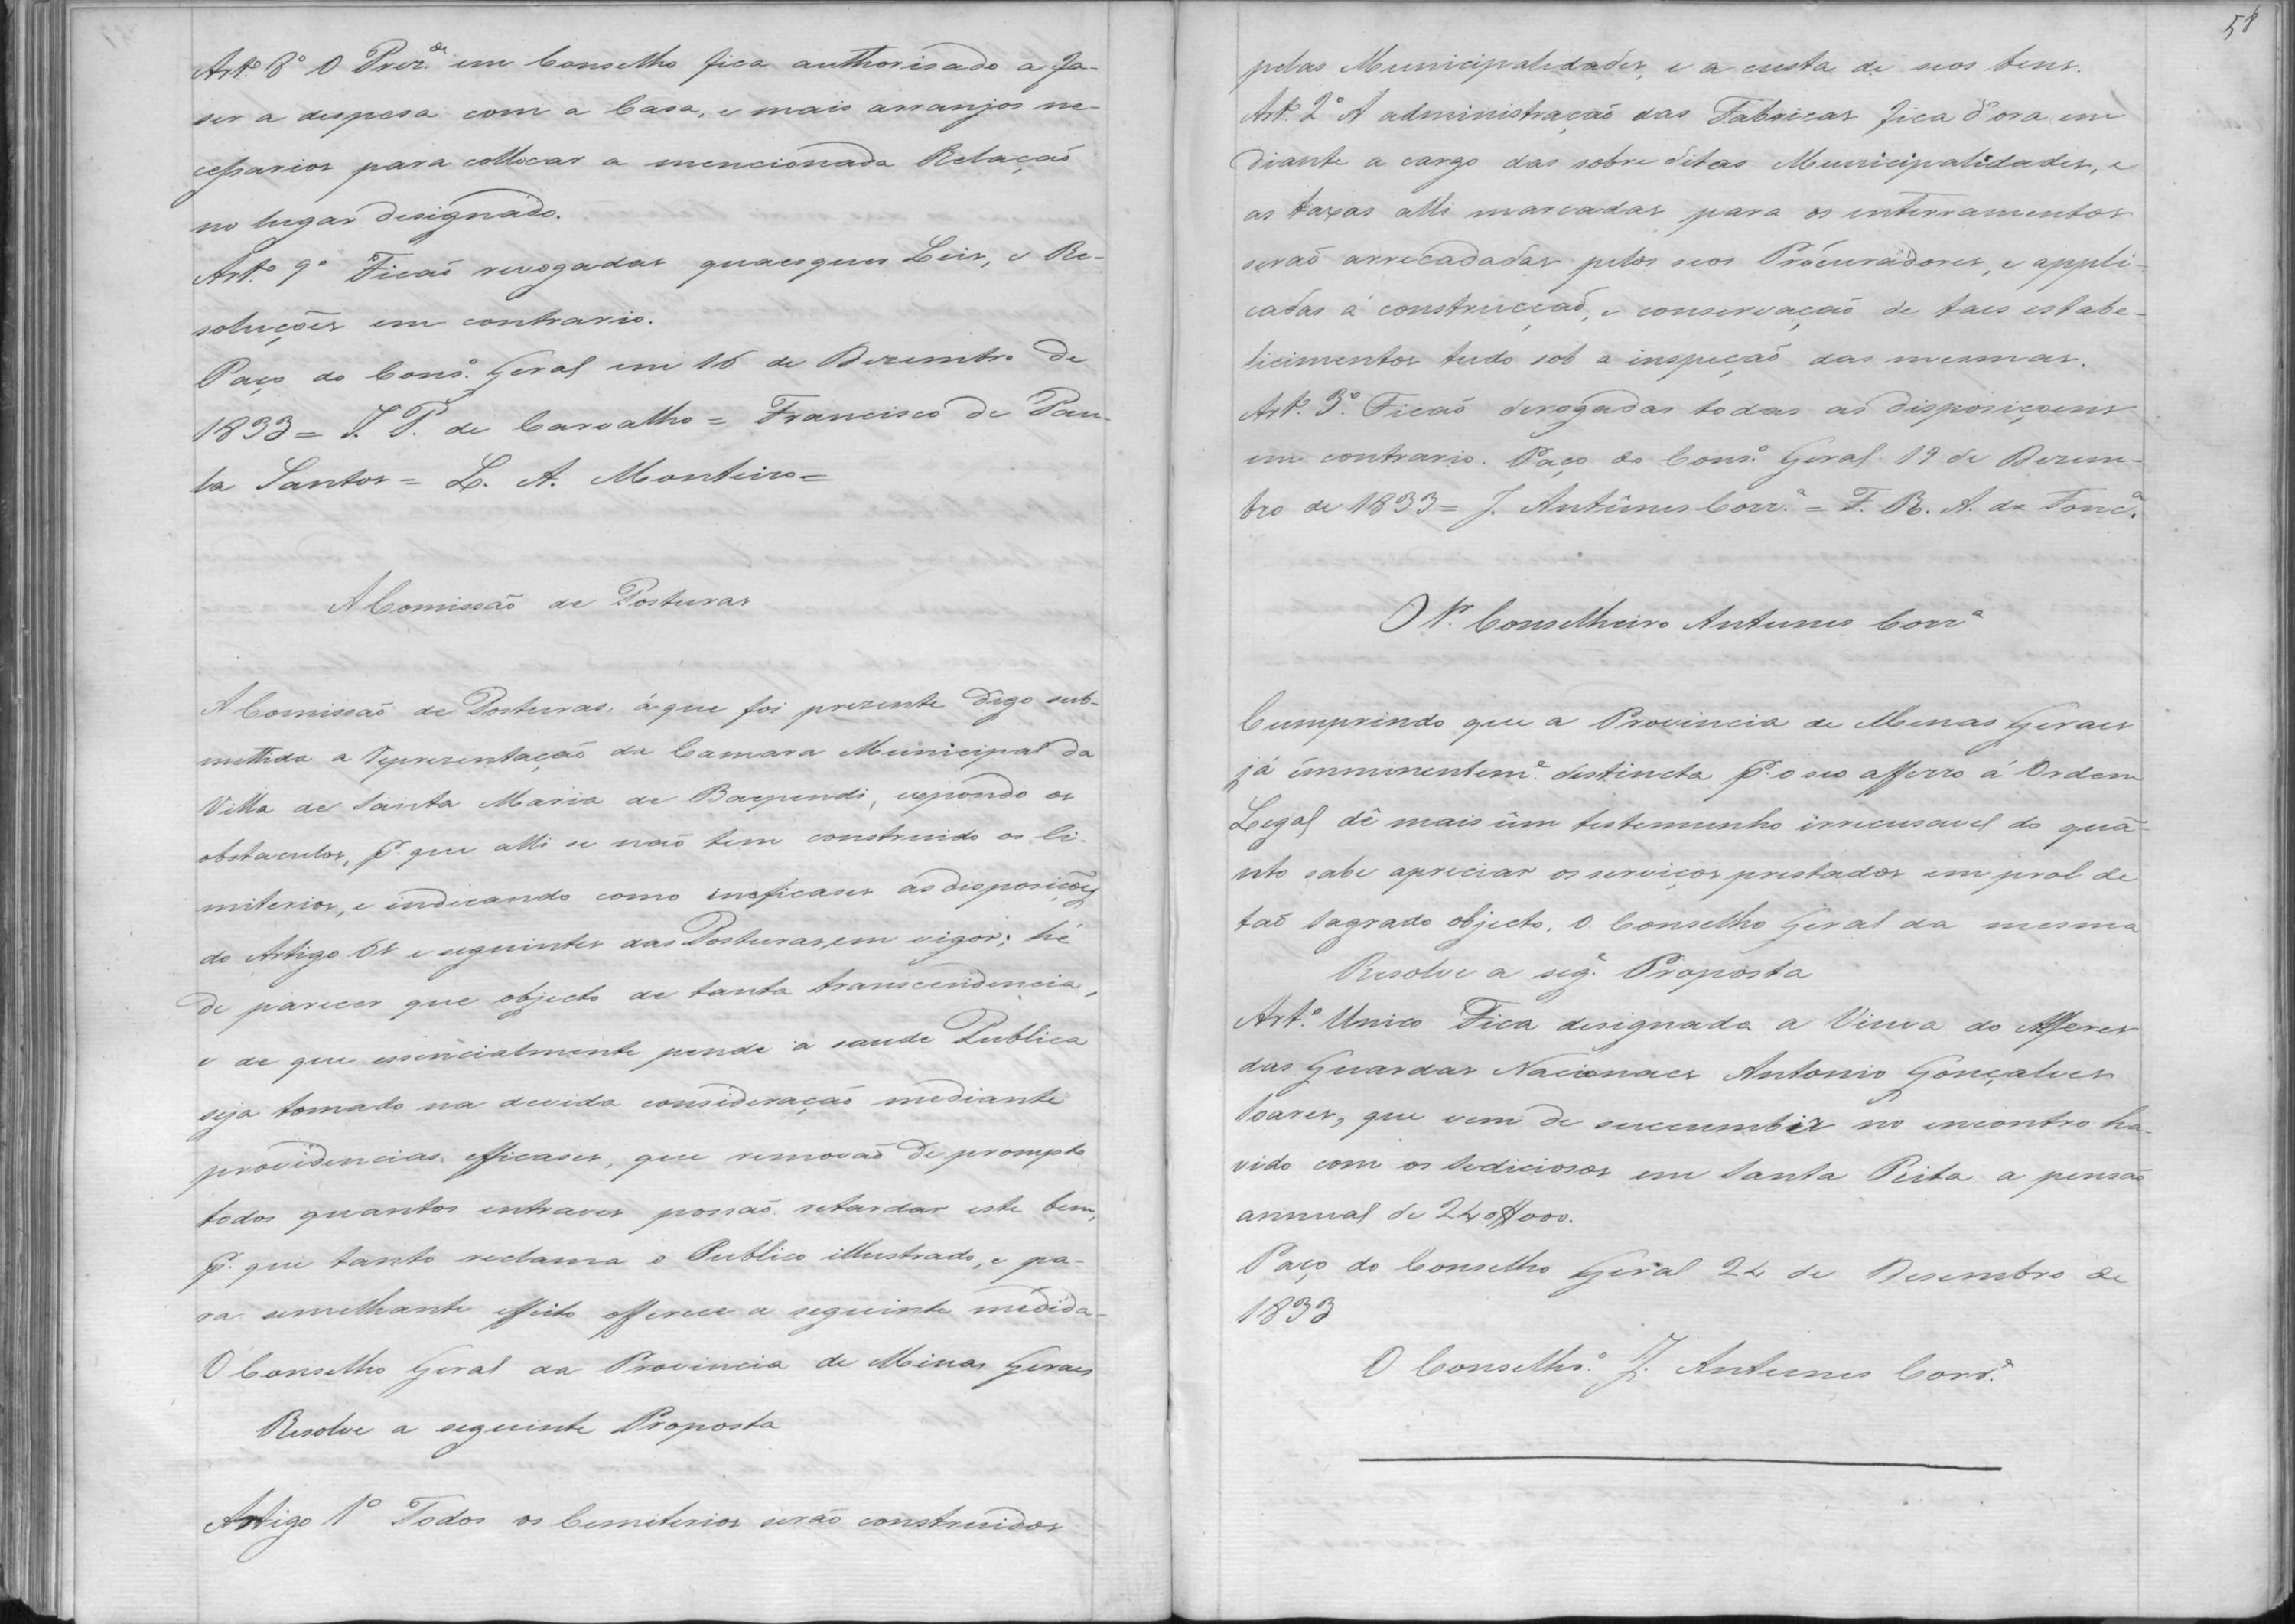 Art.º 8º O Prez.de em Conselho fica authorisado a fa-
ser a despesa com a Casa, e mais arranjos ne-
cessarios para collocar a mencionada Relação
no lugar designado.
Art.º 9º Ficaõ revogadas quaesquer Leis, e Re-
soluções em contrario.
Paço do Cons.º Geral em 16 de Dezembro de
1833 = J. P. de Carvalho = Francisco de Pau-
la Santos = L. A. Monteiro =
A Comissão de Posturas
A Comissaõ de Posturas, á que foi prezente digo sub-
mettida a Reprezentaçaõ da Camara Municipal da
Villa de Santa Maria de Baependi, expondo os
obstaculos, p.r que alli se naõ tem construido os Ci-
miterios, e indicando como ineficases as disposições
do Artigo 68 e seguintes das Posturas em vigor; hé
de parecer que objecto de tanta transcendencia,
e de que essencialmente pende a saude Publica
seja tomado na devida consideraçaõ mediante
providencias efficases, que removaõ de prompto
todos quantos entraves possaõ retardar este bem,
p.r que tanto reclama o Publico illustrado, e pa-
ra semelhante effeito offerece a seguinte medida-
O Conselho Geral da Provincia de Minas Geraes
Resolve a seguinte Proposta
Artigo 1º Todos os Cemiterios serão construidos
58
pelas Municipalidades, e a custa de seos bens.
Art.º 2º A administraçaõ das Fabricas fica d'ora em
diante a cargo das sobre ditas Municipalidades, e
as taxas alli marcadas para os enterramentos
seraõ arrecadadas pelos seos Procuradores, e appli-
cadas á construcçaõ, e conservaçaõ de taes estabe-
licimentos tudo sob a inspeçaõ das mesmas.
Art.º 3º. Ficaõ derogadas todas as disposiçoens
em contrario. Paço do Cons.º Geral 19 de Dezem-
bro de 1833 = J. Antunes Corr.ª = F. R. A. da Fonc.ª
O Sr. Conselheiro Antunes Corr.ª
Cumprindo que a Provincia de Minas Geraes
já imminentem.e destincta p.r o seo afferro á Ordem
Legal dê mais um testemunho irrecusavel do quã-
nto sabe apreciar os serviços prestados em prol de
taõ Sagrado objecto, O Conselho Geral da mesma
Resolve a seg.e Proposta
Art.º Unico Fica designada a Viuva do Alferes
das Guardas Nacionaes Antonio Gonçalves
Soares, que vem de succumbir no encontro ha-
vido com os Sediciosos em Santa Rita a pensão
annual de 240$000.
Paço do Conselho Geral 24 de Desembro de
1833
O Conselhr.º J. Antunes Corr.ª